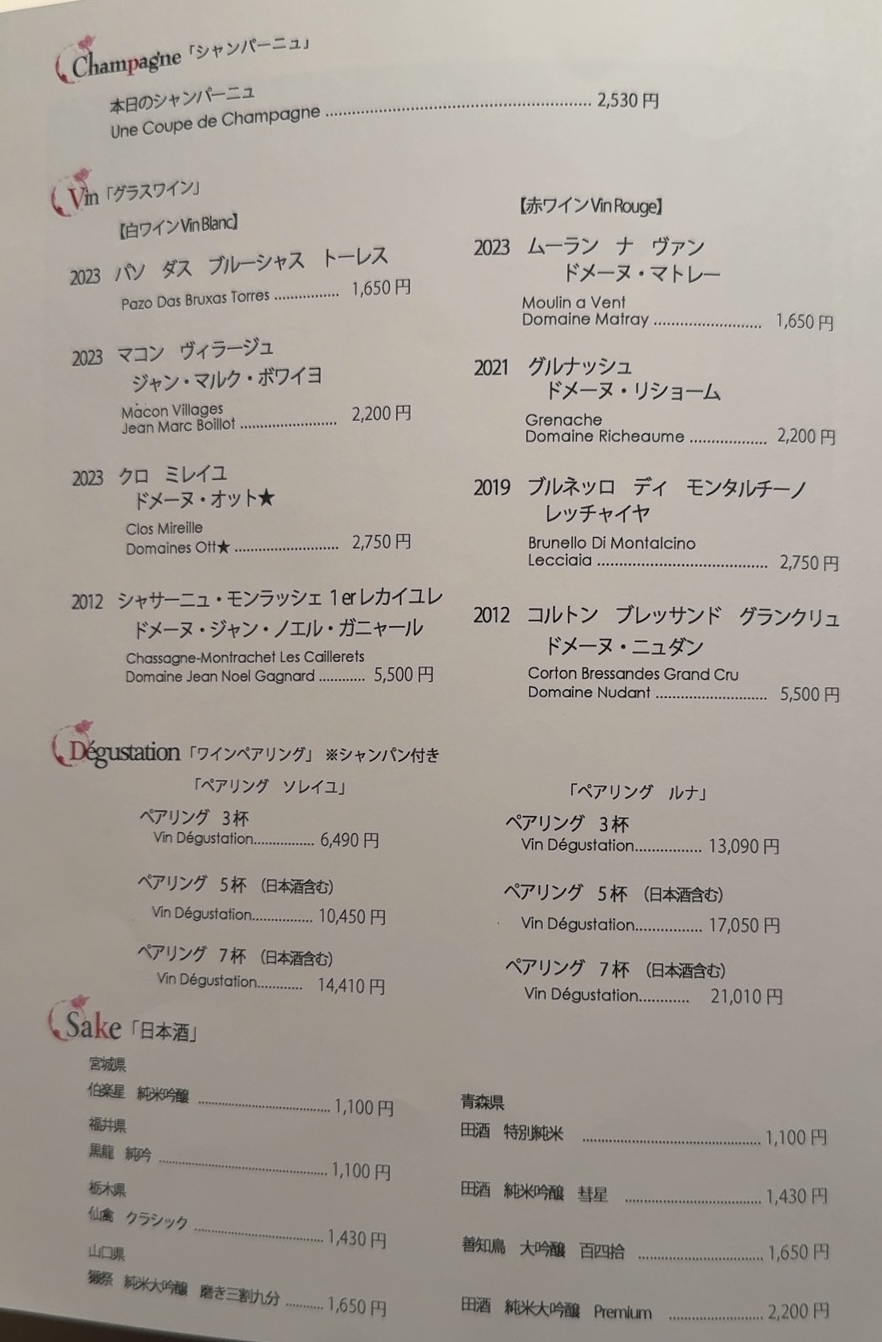 Champagne「シャンパーニュ」
本日のシャンパーニュ
Une Coupe de Champagne ........................................ 2,530 円
Vin「グラスワイン」
【白ワインVin Blanc】
2023 パソ ダス ブルーシャス トーレス
Pazo Das Bruxas Torres ................ 1,650 円
2023 マコン ヴィラージュ
ジャン・マルク・ボワイヨ
Macon Villages
Jean Marc Boillot ........................ 2,200 円
2023 クロ ミレイユ
ドメーヌ・オット★
Clos Mireille
Domaines Ott★ .......................... 2,750 円
2012 シャサーニュ・モンラッシェ 1erレカイユレ
ドメーヌ・ジャン・ノエル・ガニャール
Chassagne-Montrachet Les Caillerets
Domaine Jean Noel Gagnard ............ 5,500 円
【赤ワインVin Rouge】
2023 ムーラン ナ ヴァン
ドメーヌ・マトレー
Moulin a Vent
Domaine Matray ........................... 1,650 円
2021 グルナッシュ
ドメーヌ・リショーム
Grenache
Domaine Richeaume ................... 2,200 円
2019 ブルネッロ ディ モンタルチーノ
レッチャイヤ
Brunello Di Montalcino
Lecciaia .......................................... 2,750 円
2012 コルトン ブレッサンド グランクリュ
ドメーヌ・ニュダン
Corton Bressandes Grand Cru
Domaine Nudant ........................... 5,500 円
Dégustation「ワインペアリング」 ※シャンパン付き
「ペアリング ソレイユ」
ペアリング 3杯
Vin Dégustation............... 6,490 円
ペアリング 5杯 (日本酒含む)
Vin Dégustation............... 10,450 円
ペアリング 7杯 (日本酒含む)
Vin Dégustation........... 14,410 円
「ペアリング ルナ」
ペアリング 3杯
Vin Dégustation................ 13,090 円
ペアリング 5杯 (日本酒含む)
Vin Dégustation................ 17,050 円
ペアリング 7杯 (日本酒含む)
Vin Dégustation............ 21,010 円
Sake「日本酒」
宮城県
伯楽星 純米吟醸 ................................ 1,100 円
福井県
黒龍 純吟 ........................................ 1,100 円
栃木県
仙禽 クラシック ................................ 1,430 円
山口県
獺祭 純米大吟醸 磨き三割九分 ......... 1,650 円
青森県
田酒 特別純米 ............................................ 1,100 円
田酒 純米吟醸 彗星 ................................. 1,430 円
善知鳥 大吟醸 百四拾 .............................. 1,650 円
田酒 純米大吟醸 Premium ....................... 2,200 円